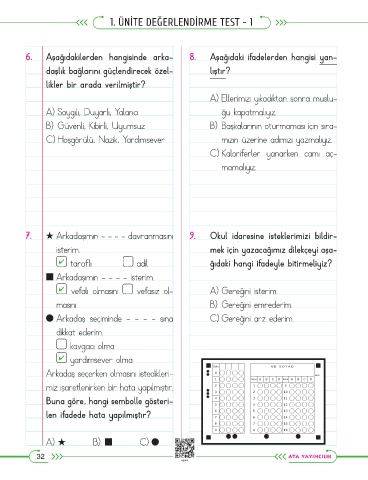 1. ÜNİTE DEĞERLENDİRME TEST - 1
6. Aşağıdakilerden hangisinde arka-
daşlık bağlarını güçlendirecek özel-
likler bir arada verilmiştir?
A) Saygılı, Duyarlı, Yalancı
B) Güvenli, Kibirli, Uyumsuz
C) Hoşgörülü, Nazik, Yardımsever
7. ★ Arkadaşımın - - - - davranmasını
isterim.
✓ taraflı adil
■ Arkadaşımın - - - - isterim.
✓ vefalı olmasını vefasız ol-
masını
● Arkadaş seçiminde - - - - sına
dikkat ederim.
kavgacı olma
✓ yardımsever olma
Arkadaş seçerken olmasını istedikleri-
miz işaretlenirken bir hata yapılmıştır.
Buna göre, hangi sembolle gösteri-
len ifadede hata yapılmıştır?
A) ★ B) ■ C) ●
8. Aşağıdaki ifadelerden hangisi yan-
lıştır?
A) Ellerimizi yıkadıktan sonra muslu-
ğu kapatmalıyız.
B) Başkalarının oturmaması için sıra-
mızın üzerine adımızı yazmalıyız.
C) Kaloriferler yanarken camı aç-
mamalıyız.
9. Okul idaresine isteklerimizi bildir-
mek için yazacağımız dilekçeyi aşa-
ğıdaki hangi ifadeyle bitirmeliyiz?
A) Gereğini isterim.
B) Gereğini emrederim.
C) Gereğini arz ederim.
AD SOYAD
32
ATA YAYINCILIK